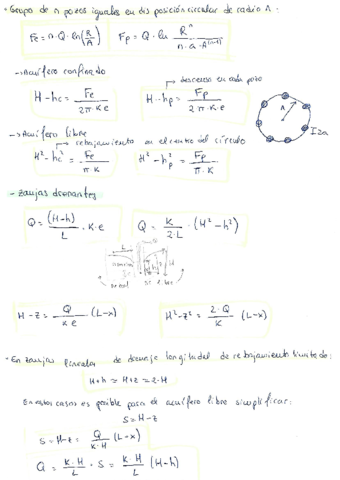 • Grupo de n pozos iguales en disposición circular de radio A:
Fc = n · Q · ln(R/A)   Fp = Q · ln R^n / (n · a · A^(n-1))
→ Acuífero confinado
→ descenso en cada pozo
H - hc = Fc / (2π·K·e)   H - hp = Fp / (2π·K·e)
→ Acuífero libre
→ rebajamiento en el centro del círculo
H² - hc² = Fc / (π·K)   H² - hp² = Fp / (π·K)
A
- Zanjas drenantes
Q = (H-h) / L · K·e   Q = K / (2·L) · (H² - h²)
L
H - z = Q / (K e) (L-x)   H² - z² = 2·Q / K (L-x)
• En zanjas de drenaje longitudinal de rebajamiento limitado:
H+h ≈ H+z ≈ 2·H
En estos casos es posible para el acuífero libre simplificar:
S = H-z
S = H-z = Q / (K·H) (L-x)
Q = K·H / L · S = K·H / L (H-h)